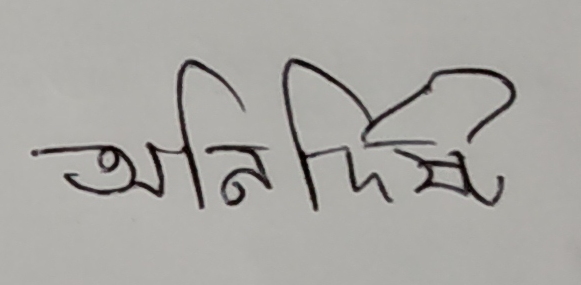 অনির্দিষ্ট